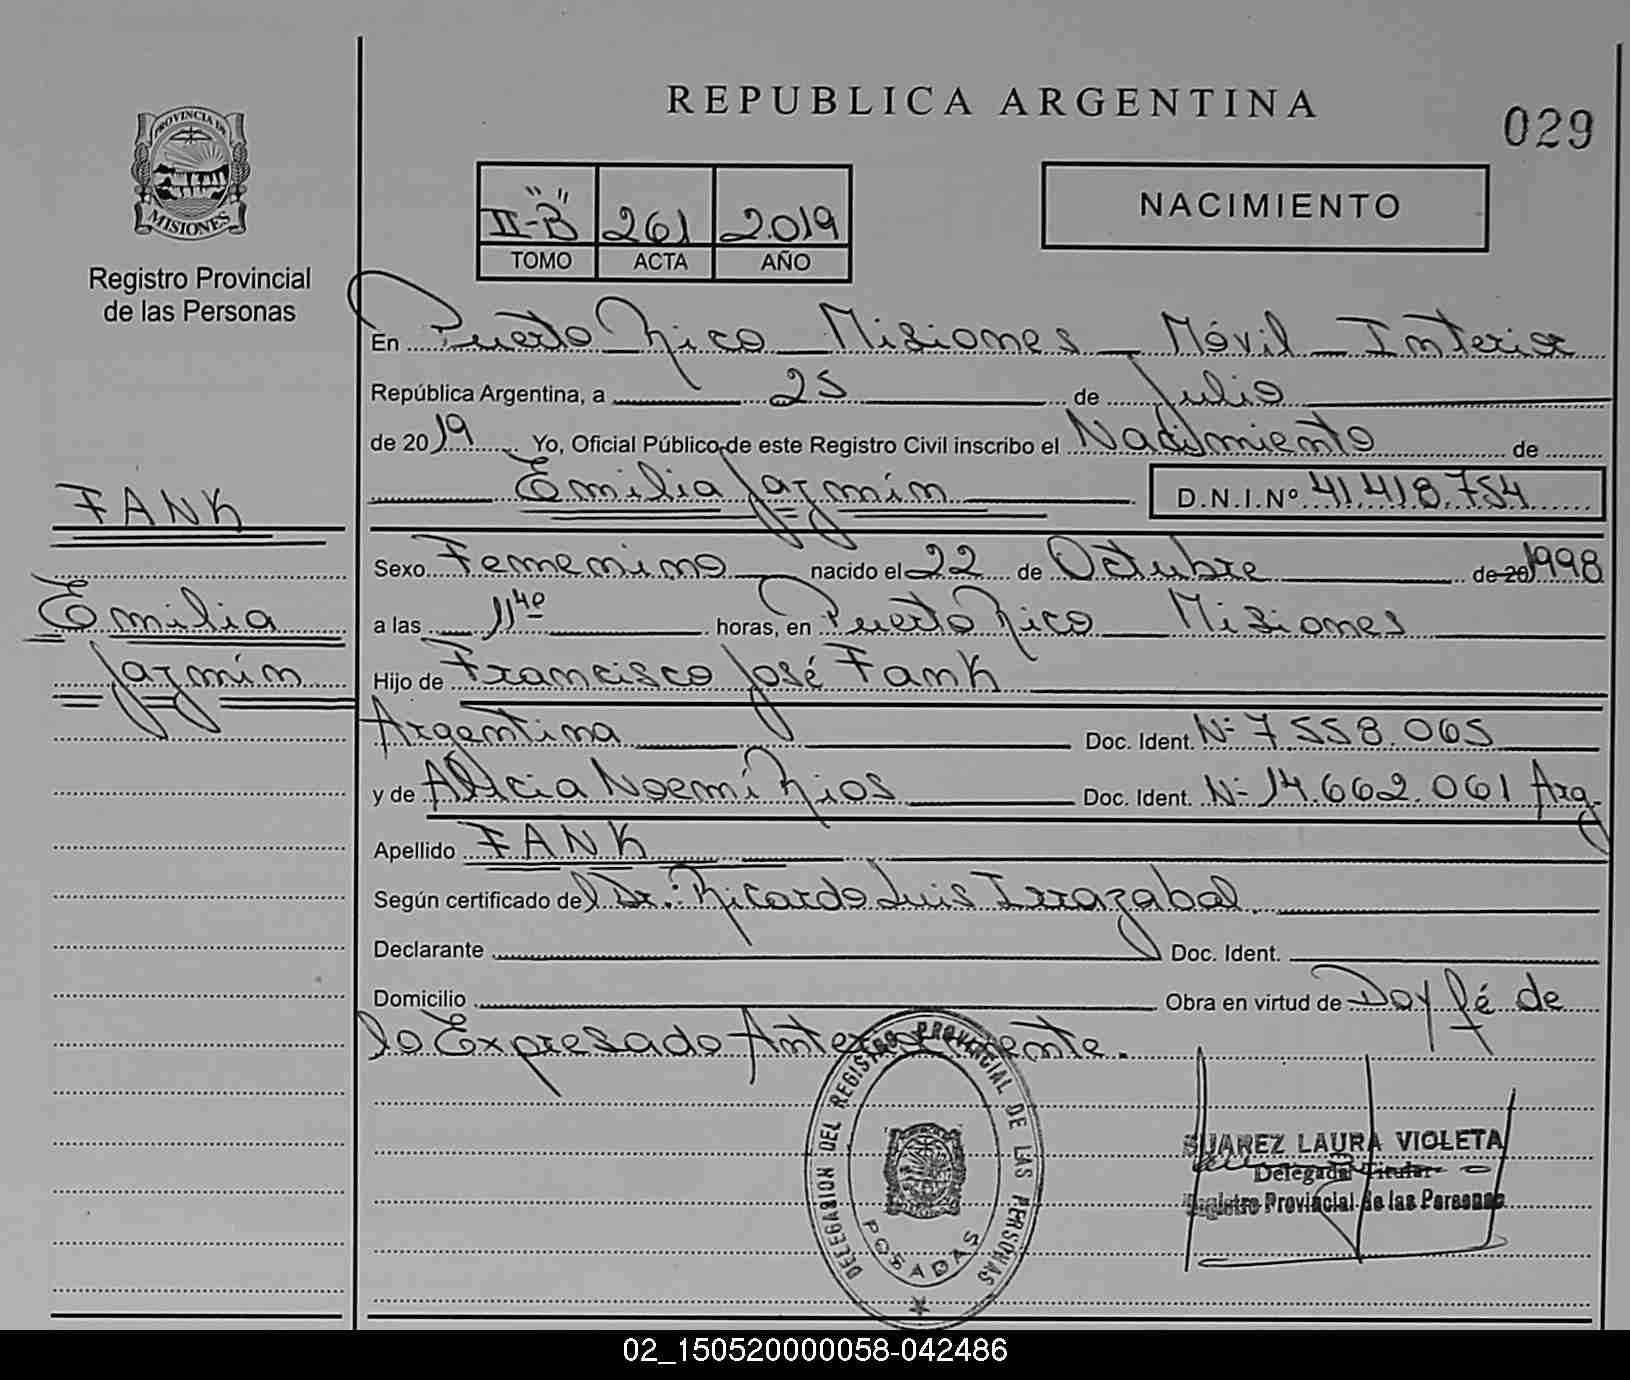 REPUBLICA ARGENTINA
029
PROVINCIA DE
MISIONES
Registro Provincial
de las Personas
II-"B" 261 2.019
TOMO ACTA AÑO
NACIMIENTO
En Puerto Rico Misiones Móvil Interior
República Argentina, a 25 de Julio
de 2019 Yo, Oficial Público de este Registro Civil inscribo el Nacimiento de
Emilia Jazmín D.N.I.Nº 41.418.754
FANK
Emilia
Jazmín
Sexo Femenino nacido el 22 de Octubre de 20 1998
a las 11 40 horas, en Puerto Rico Misiones
Hijo de Francisco José Fank
Argentina Doc. Ident. Nº 7.558.065
y de Alicia Noemí Rios Doc. Ident. Nº 14.662.061 Arg.
Apellido FANK
Según certificado del Dr.: Ricardo Luis Irrazabal
Declarante Doc. Ident.
Domicilio Obra en virtud de Doy fé de
lo Expresado Anteriormente.
DELEGASION DEL REGISTRO PROVINCIAL DE LAS PERSONAS
POSADAS
SUAREZ LAURA VIOLETA
Delegada Titular
Registro Provincial de las Personas
02_150520000058-042486